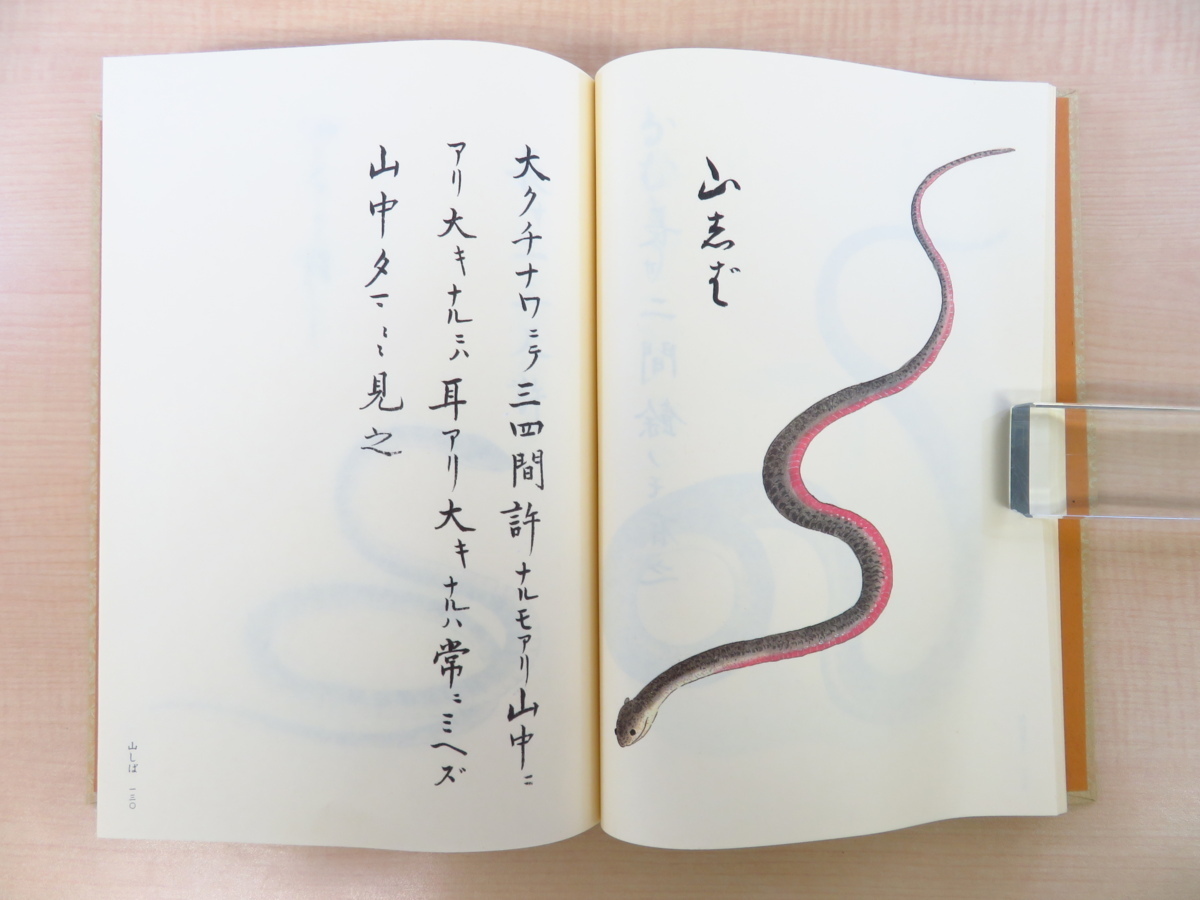 山志ば
大クチナワニテ三四間許ナルモアリ山中ニ
アリ大キナルニハ耳アリ大キナルハ常ニミヘズ
山中タマヽヽ見之
山しば 一三〇